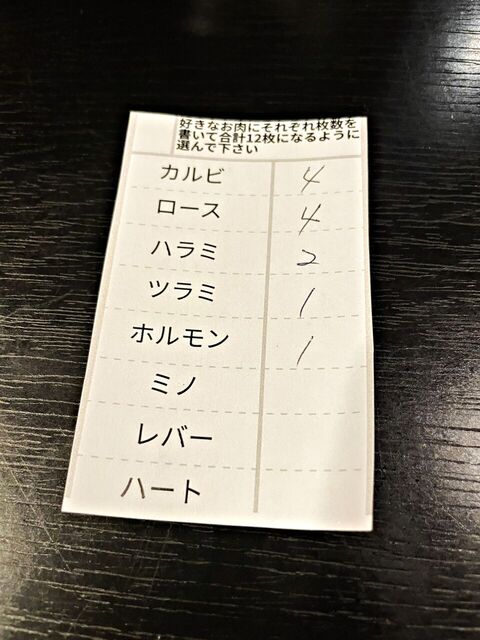 好きなお肉にそれぞれ枚数を
書いて合計12枚になるように
選んで下さい
カルビ 4
ロース 4
ハラミ 2
ツラミ 1
ホルモン 1
ミノ
レバー
ハート